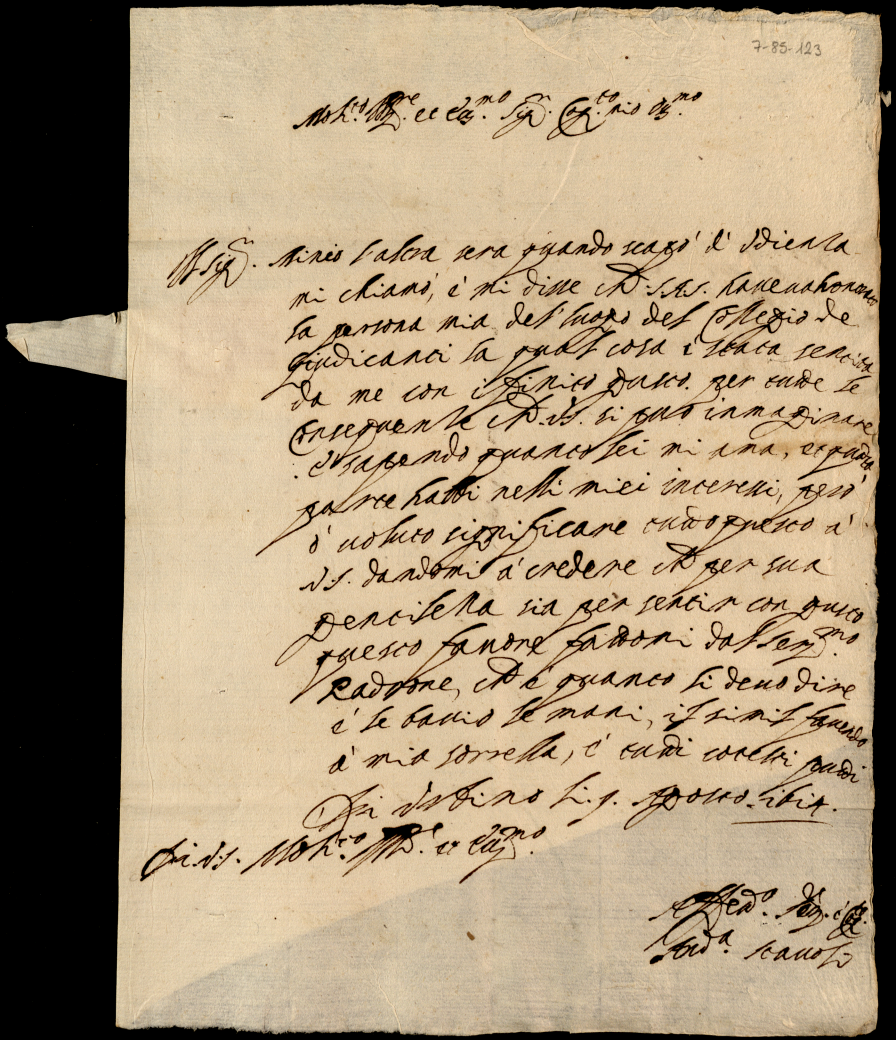 7-85-123
Molto Ill.re et Ecc.mo Sig.r Cog.to mio oss.mo
Il Sig.r Mineo l'altra sera quando scapò d'Odienza
mi chiamò, e mi disse ch S.A.S. haveva honorato
la persona mia del luogo del Collegio de
giudicanti la qual cosa è stata sentita
da me con ifinito gusto per tutte le
Conseguente ch V.S. si può inmaginare
e sapendo quanto lei mi ama, et quanta
parte habbi nelli miei interessi, però
ò voluto significare tutto questo à
V.S. dandomi à credere ch per sua
gentilezza sia per sentir con gusto
questo favore fattomi dal Ser.mo
Padrone, ch è quanto li devo dire
e le bacio le mani, il simil facendo
à mia sorrella, e tutti cotesti putti
Di Urbino li 9. Agosto 1614.
Di V.S. Molto Ill.re et Ecc.mo
Aff.mo Ser. e Cog.to